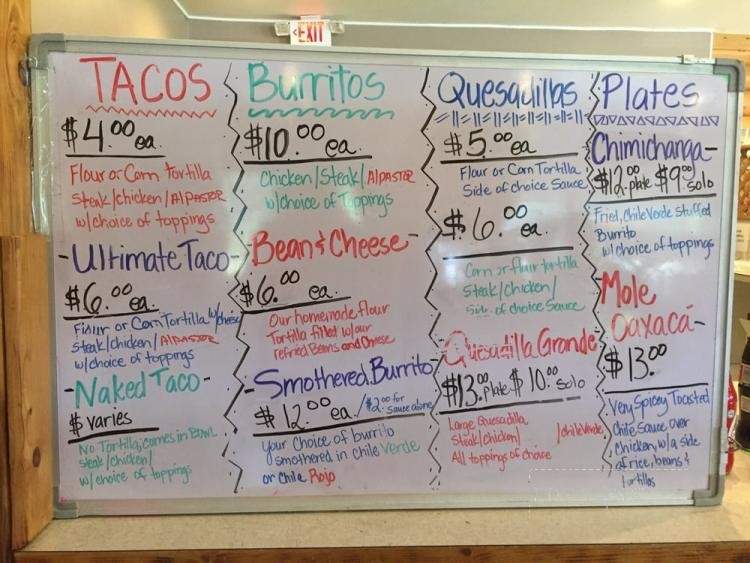 EXIT
TACOS
$4.00 ea.
Flour or Corn Tortilla
Steak/chicken/Al PASTER
w/choice of toppings
-Ultimate Taco-
$6.00 ea.
Flour or Corn Tortilla w/cheese
steak/chicken/Al PASTER
w/choice of toppings
-Naked Taco-
$ varies
No Tortilla, comes in Bowl
steak/chicken/
w/choice of toppings
Burritos
$10.00 ea.
Chicken/Steak/Al PASTER
w/choice of Toppings
Bean & Cheese-
$6.00 ea.
Our homemade flour
Tortilla filled w/our
refried Beans and Cheese
-Smothered Burrito-
$12.00 ea /$2.00 for
sauce alone
your choice of burrito
smothered in chile Verde
or Chile Rojo
Quesadillas
$5.00 ea.
Flour or Corn Tortilla
Side of choice Sauce
$6.00 ea.
Corn or flour tortilla
Steak/chicken/
Side of choice Sauce
Quesadilla Grande
$13.00 plate $10.00 solo
Large Quesadilla
steak/chicken/ /chile Verde
All toppings of choice
Plates
Chimichanga-
$12.00 plate $9.00 solo
Fried, Chile Verde stuffed
Burrito
w/choice of toppings
Mole
Oaxacá-
$13.00
Very Spicey Toasted
Chile Sauce over
Chicken, w/a side
of rice, beans &
tortillas